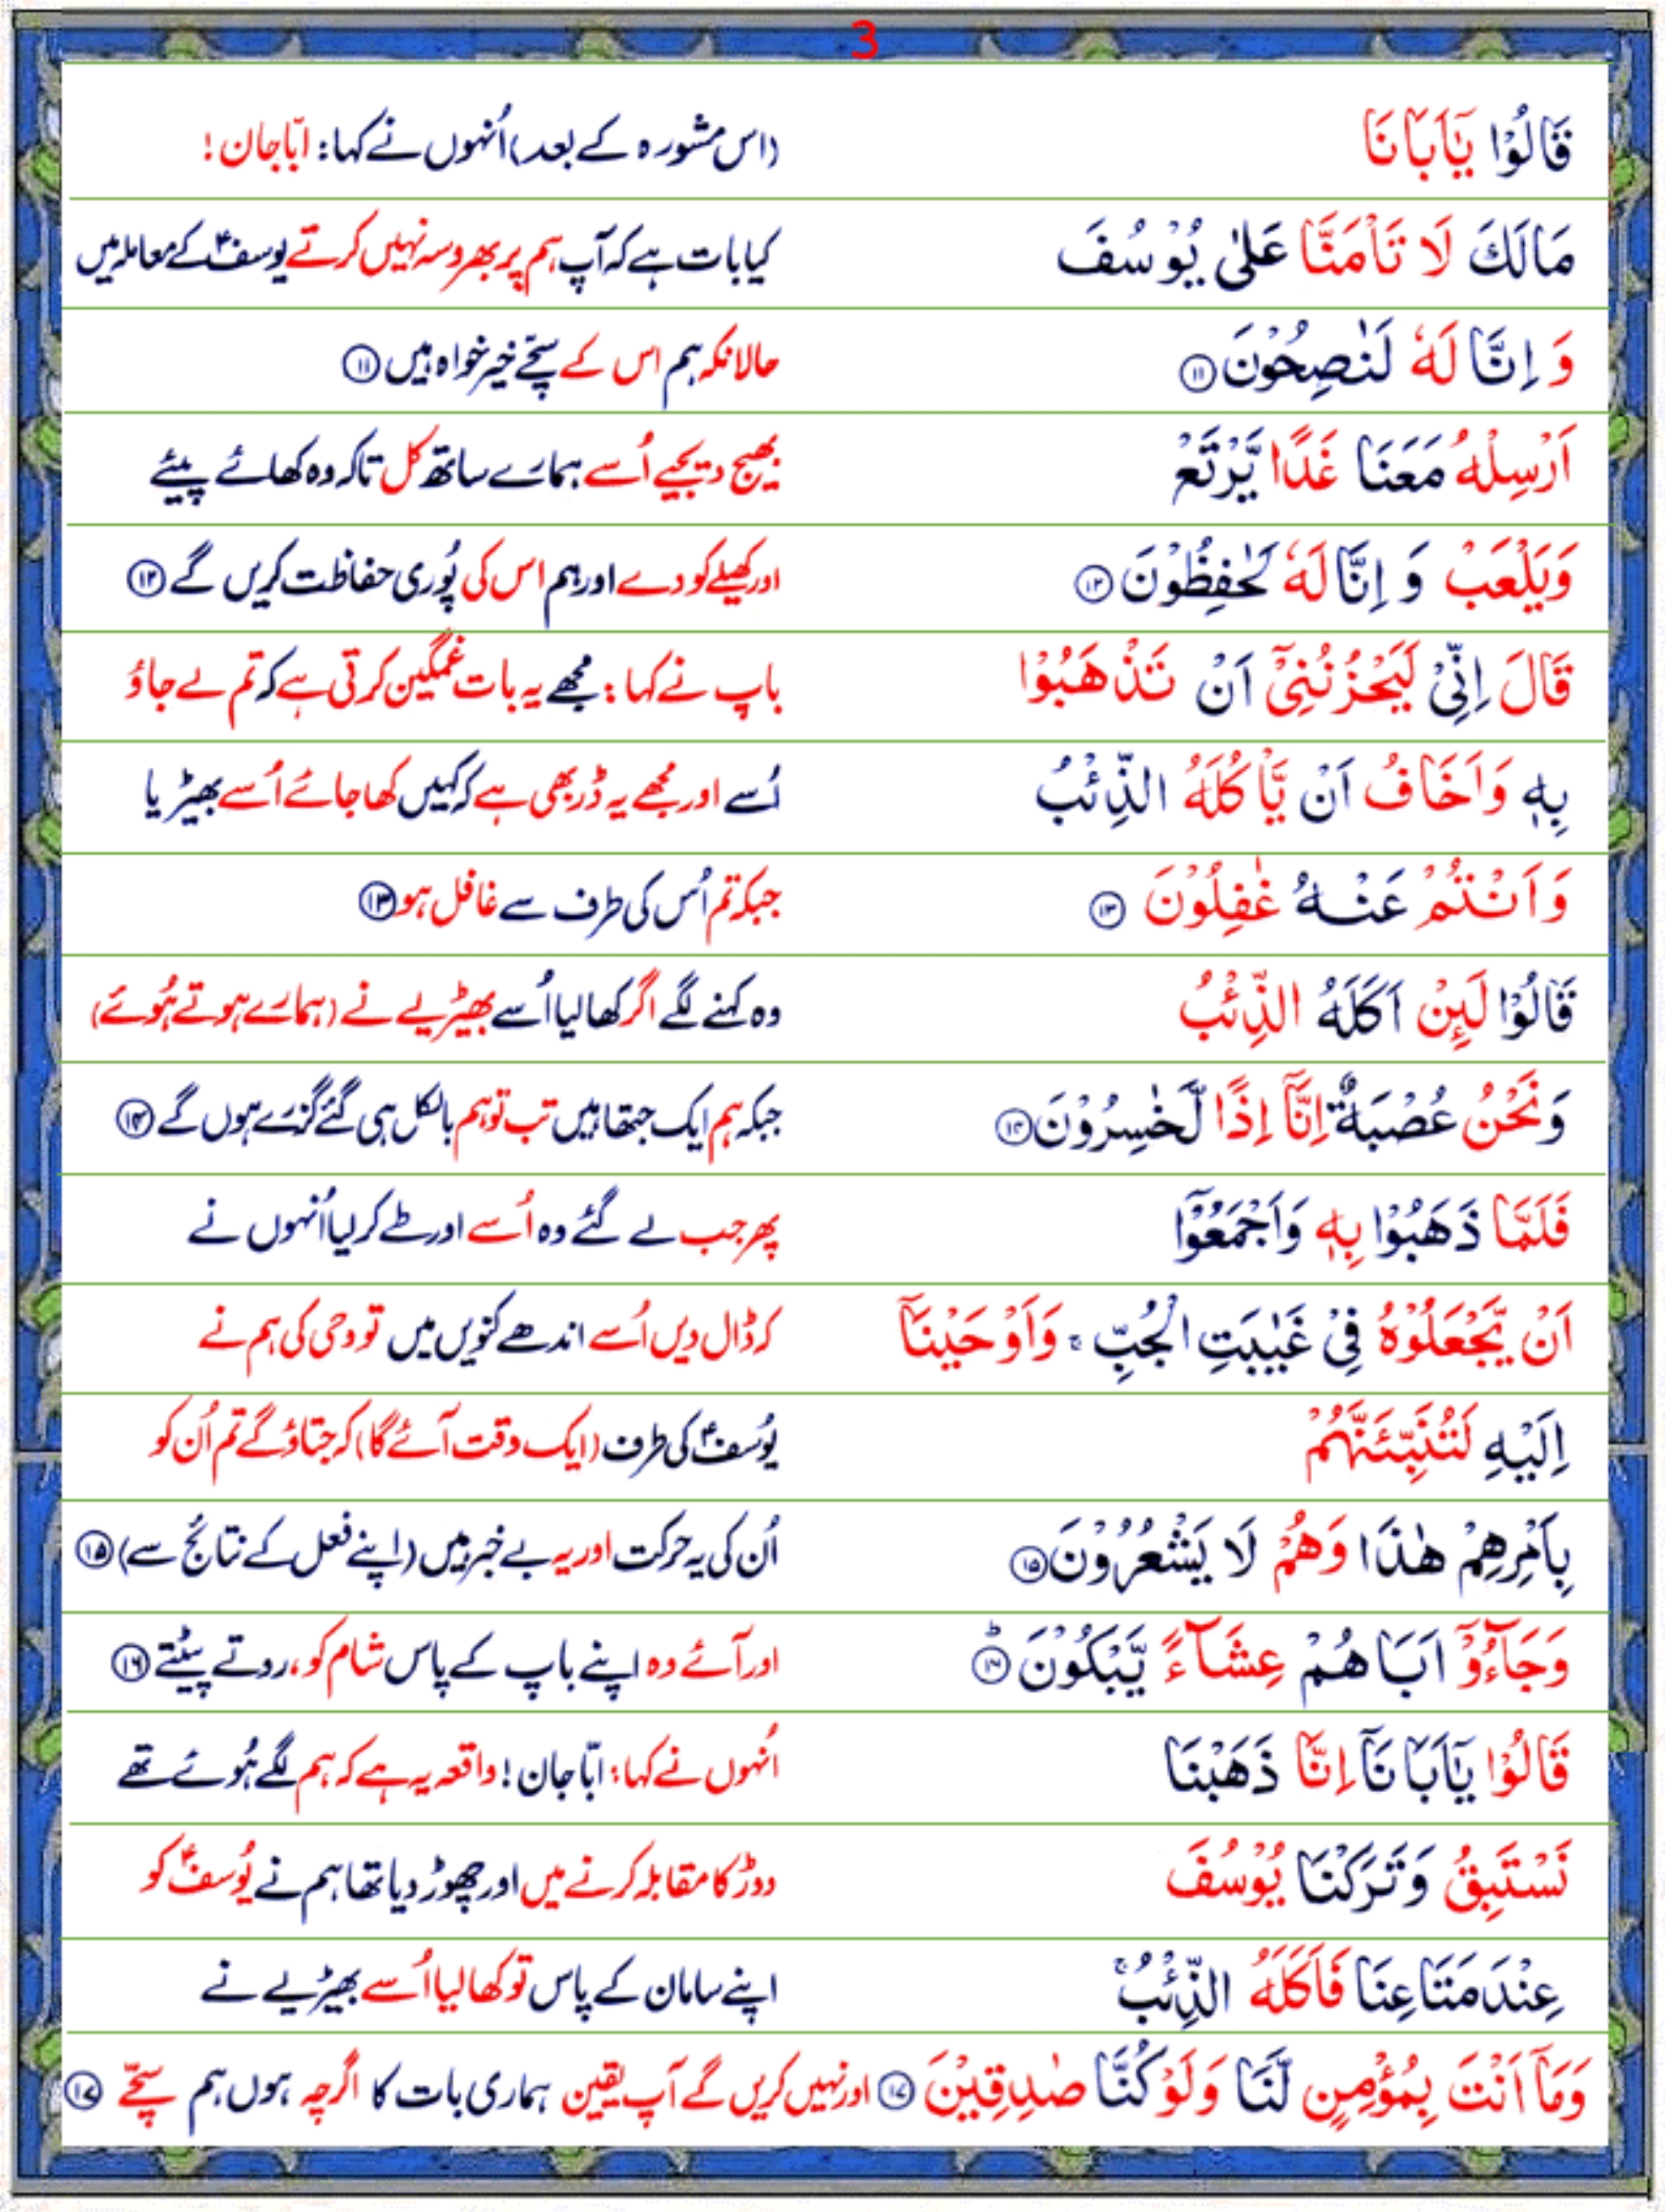 3
قَالُوۡا يٰۤاَبَانَا (اس مشورہ کے بعد) اُنہوں نے کہا: ابّاجان!
مَالَكَ لَا تَاۡمَنَّا عَلٰى يُوۡسُفَ کیا بات ہے کہ آپ ہم پر بھروسہ نہیں کرتے یوسفؑ کے معاملہ میں
وَ اِنَّا لَهٗ لَنٰصِحُوۡنَ ﴿۱۱﴾ حالانکہ ہم اس کے سچّے خیر خواہ ہیں ﴿۱۱﴾
اَرۡسِلۡهُ مَعَنَا غَدًا يَّرۡتَعۡ بھیج دیجیے اُسے ہمارے ساتھ کل تاکہ وہ کھائے پیئے
وَيَلۡعَبۡ وَ اِنَّا لَهٗ لَحٰفِظُوۡنَ ﴿۱۲﴾ اور کھیلے کودے اور ہم اس کی پُوری حفاظت کریں گے ﴿۱۲﴾
قَالَ اِنِّىۡ لَيَحۡزُنُنِىۡۤ اَنۡ تَذۡهَبُوۡا باپ نے کہا: مجھے یہ بات غمگین کرتی ہے کہ تم لے جاؤ
بِهٖ وَاَخَافُ اَنۡ يَّاۡكُلَهُ الذِّئۡبُ اُسے اور مجھے یہ ڈر بھی ہے کہ کہیں کھا جائے اُسے بھیڑیا
وَاَنۡتُمۡ عَنۡهُ غٰفِلُوۡنَ ﴿۱۳﴾ جبکہ تم اُس کی طرف سے غافل ہو ﴿۱۳﴾
قَالُوۡا لَئِنۡ اَكَلَهُ الذِّئۡبُ وہ کہنے لگے اگر کھا لیا اُسے بھیڑیے نے (ہمارے ہوتے ہُوئے)
وَنَحۡنُ عُصۡبَةٌ اِنَّاۤ اِذًا لَّخٰسِرُوۡنَ ﴿۱۴﴾ جبکہ ہم ایک جتھا ہیں تب تو ہم بالکل ہی گئے گزرے ہوں گے ﴿۱۴﴾
فَلَمَّا ذَهَبُوۡا بِهٖ وَاَجۡمَعُوۡۤا پھر جب لے گئے وہ اُسے اور طے کر لیا اُنہوں نے
اَنۡ يَّجۡعَلُوۡهُ فِىۡ غَيٰبَتِ الۡجُبِّ‌ۚ وَاَوۡحَيۡنَاۤ کہ ڈال دیں اُسے اندھے کنویں میں تو وحی کی ہم نے
اِلَيۡهِ لَتُنَبِّئَنَّهُمۡ یُوسفؑ کی طرف (ایک وقت آئے گا) کہ جتاؤ گے تم اُن کو
بِاَمۡرِهِمۡ هٰذَا وَهُمۡ لَا يَشۡعُرُوۡنَ ﴿۱۵﴾ اُن کی یہ حرکت اور یہ بے خبر ہیں (اپنے فعل کے نتائج سے) ﴿۱۵﴾
وَجَآءُوۡۤ اَبَاهُمۡ عِشَآءً يَّبۡكُوۡنَؕ ﴿۱۶﴾ اور آئے وہ اپنے باپ کے پاس شام کو، روتے پیٹتے ﴿۱۶﴾
قَالُوۡا يٰۤاَبَانَاۤ اِنَّا ذَهَبۡنَا اُنہوں نے کہا: ابّا جان! واقعہ یہ ہے کہ ہم لگے ہُوئے تھے
نَسۡتَبِقُ وَتَرَكۡنَا يُوۡسُفَ دوڑ کا مقابلہ کرنے میں اور چھوڑ دیا تھا ہم نے یُوسفؑ کو
عِنۡدَ مَتَاعِنَا فَاَكَلَهُ الذِّئۡبُ‌ۚ اپنے سامان کے پاس تو کھا لیا اُسے بھیڑیے نے
وَمَاۤ اَنۡتَ بِمُؤۡمِنٍ لَّنَا وَلَوۡ كُنَّا صٰدِقِيۡنَ ﴿۱۷﴾ اور نہیں کریں گے آپ یقین ہماری بات کا اگرچہ ہوں ہم سچّے ﴿۱۷﴾